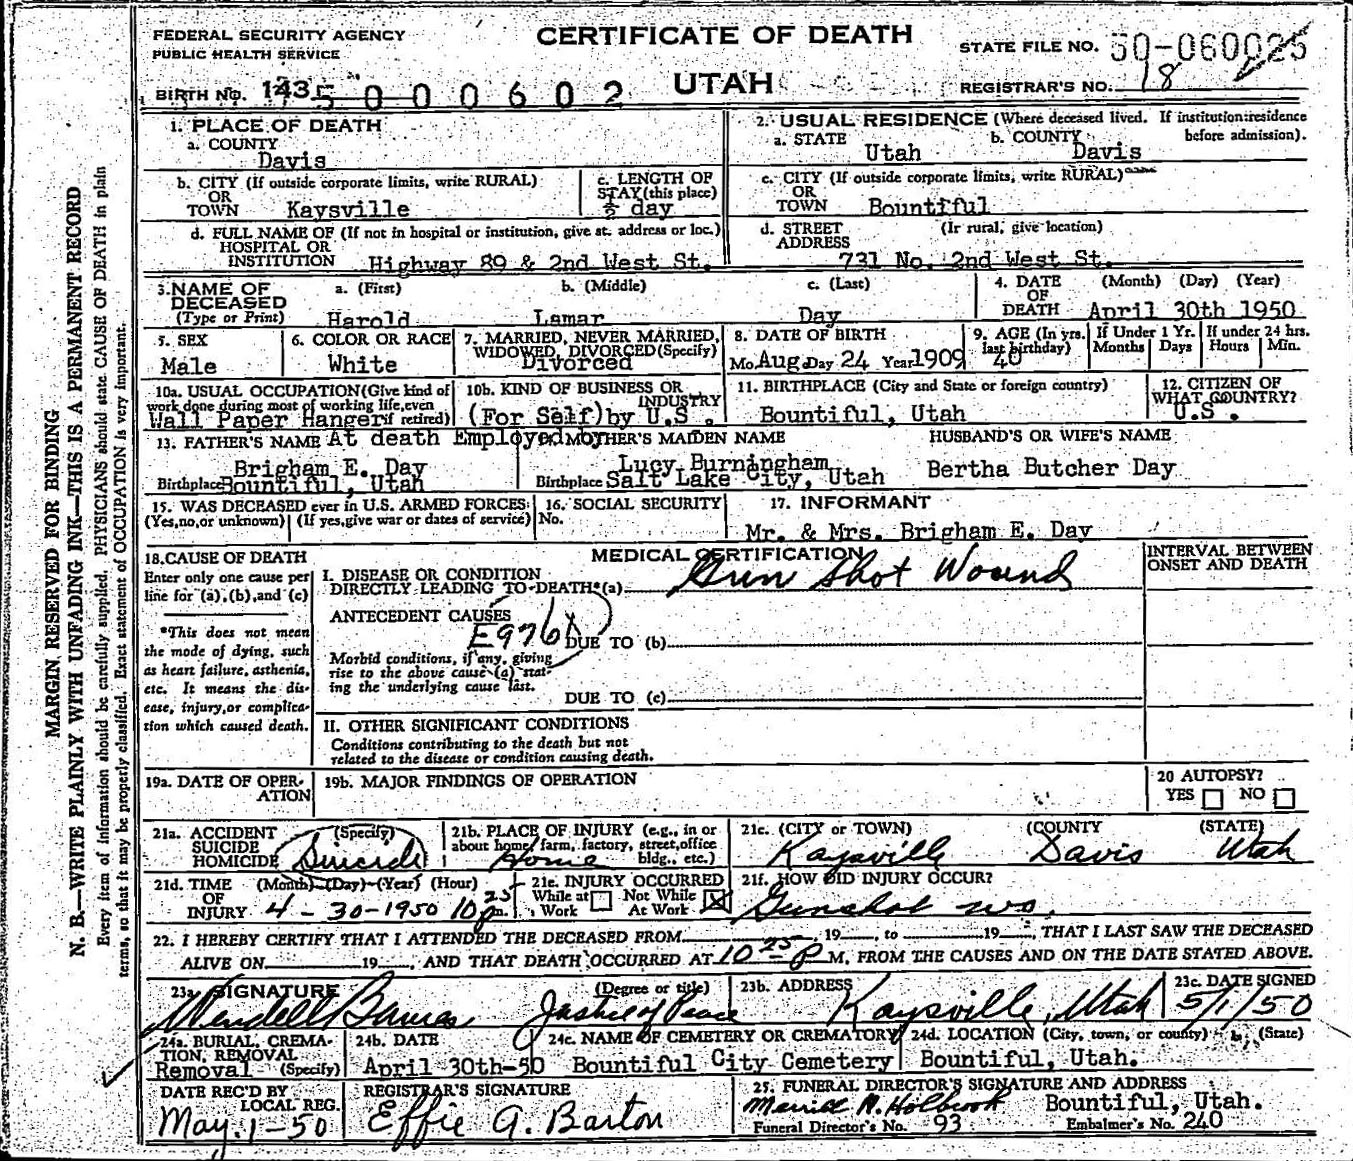 FEDERAL SECURITY AGENCY
PUBLIC HEALTH SERVICE
CERTIFICATE OF DEATH
UTAH
STATE FILE NO. 50-060025
REGISTRAR'S NO. 18
BIRTH NO. 143 5000602
1. PLACE OF DEATH
a. COUNTY
Davis
b. CITY (If outside corporate limits, write RURAL)
OR
TOWN Kaysville
c. LENGTH OF
STAY (this place)
½ day
d. FULL NAME OF (If not in hospital or institution, give st. address or loc.)
HOSPITAL OR
INSTITUTION Highway 89 & 2nd West St.
2. USUAL RESIDENCE (Where deceased lived. If institution: residence
before admission).
a. STATE Utah b. COUNTY Davis
c. CITY (If outside corporate limits, write RURAL)
OR
TOWN Bountiful
d. STREET (If rural, give location)
ADDRESS
731 No. 2nd West St.
3. NAME OF
DECEASED
(Type or Print)
a. (First) b. (Middle) c. (Last)
Harold Lamar Day
4. DATE (Month) (Day) (Year)
OF
DEATH April 30th 1950
5. SEX
Male
6. COLOR OR RACE
White
7. MARRIED, NEVER MARRIED,
WIDOWED, DIVORCED (Specify)
Divorced
8. DATE OF BIRTH
Mo. Aug Day 24 Year 1909
9. AGE (In yrs.
last birthday)
40
If Under 1 Yr.
Months Days
If under 24 hrs.
Hours Min.
10a. USUAL OCCUPATION (Give kind of
work done during most of working life, even
if retired)
Wall Paper Hanger
10b. KIND OF BUSINESS OR
INDUSTRY
(For Self) by U.S.
11. BIRTHPLACE (City and State or foreign country)
Bountiful, Utah
12. CITIZEN OF
WHAT COUNTRY?
U.S.
13. FATHER'S NAME At death Employed by
Brigham E. Day
Birthplace Bountiful, Utah
MOTHER'S MAIDEN NAME
Lucy Burningham
Birthplace Salt Lake City, Utah
HUSBAND'S OR WIFE'S NAME
Bertha Butcher Day
15. WAS DECEASED ever in U.S. ARMED FORCES:
(Yes, no, or unknown) (If yes, give war or dates of service)
16. SOCIAL SECURITY
No.
17. INFORMANT
Mr. & Mrs. Brigham E. Day
18. CAUSE OF DEATH
Enter only one cause per
line for (a), (b), and (c)
*This does not mean
the mode of dying, such
as heart failure, asthenia,
etc. It means the dis-
ease, injury, or complica-
tion which caused death.
MEDICAL CERTIFICATION
INTERVAL BETWEEN
ONSET AND DEATH
I. DISEASE OR CONDITION
DIRECTLY LEADING TO DEATH* (a) Gun Shot Wound
ANTECEDENT CAUSES
E976X
DUE TO (b)
Morbid conditions, if any, giving
rise to the above cause (a) stat-
ing the underlying cause last.
DUE TO (c)
II. OTHER SIGNIFICANT CONDITIONS
Conditions contributing to the death but not
related to the disease or condition causing death.
19a. DATE OF OPER-
ATION
19b. MAJOR FINDINGS OF OPERATION
20 AUTOPSY?
YES NO
21a. ACCIDENT (Specify)
SUICIDE
HOMICIDE
Suicide
21b. PLACE OF INJURY (e.g., in or
about home, farm, factory, street, office
bldg., etc.)
Home
21c. (CITY or TOWN) (COUNTY (STATE)
Kaysville Davis Utah
21d. TIME (Month) (Day) (Year) (Hour)
OF
INJURY 4 - 30 - 1950 10 25 p m.
21e. INJURY OCCURRED
While at Not While
Work At Work X
21f. HOW DID INJURY OCCUR?
Gunshot wo.
22. I HEREBY CERTIFY THAT I ATTENDED THE DECEASED FROM 19 , to 19 , THAT I LAST SAW THE DECEASED
ALIVE ON 19 , AND THAT DEATH OCCURRED AT 10 25 P M, FROM THE CAUSES AND ON THE DATE STATED ABOVE.
23a. SIGNATURE (Degree or title)
Wendell Barnes Justice of Peace
23b. ADDRESS
Kaysville, Utah
23c. DATE SIGNED
5/1/50
24a. BURIAL, CREMA-
TION, REMOVAL
Removal (Specify)
24b. DATE
April 30th-50
24c. NAME OF CEMETERY OR CREMATORY
Bountiful City Cemetery
24d. LOCATION (City, town, or county) (State)
Bountiful, Utah.
DATE REC'D BY
LOCAL REG.
May. 1-50
REGISTRAR'S SIGNATURE
Effie G. Barton
25. FUNERAL DIRECTOR'S SIGNATURE AND ADDRESS
Merrill N. Holbrook Bountiful, Utah.
Funeral Director's No. 93 Embalmer's No. 240
MARGIN RESERVED FOR BINDING
N. B.—WRITE PLAINLY WITH UNFADING INK—THIS IS A PERMANENT RECORD
Every item of information should be carefully supplied. PHYSICIANS should state CAUSE OF DEATH in plain
terms, so that it may be properly classified. Exact statement of OCCUPATION is very important.